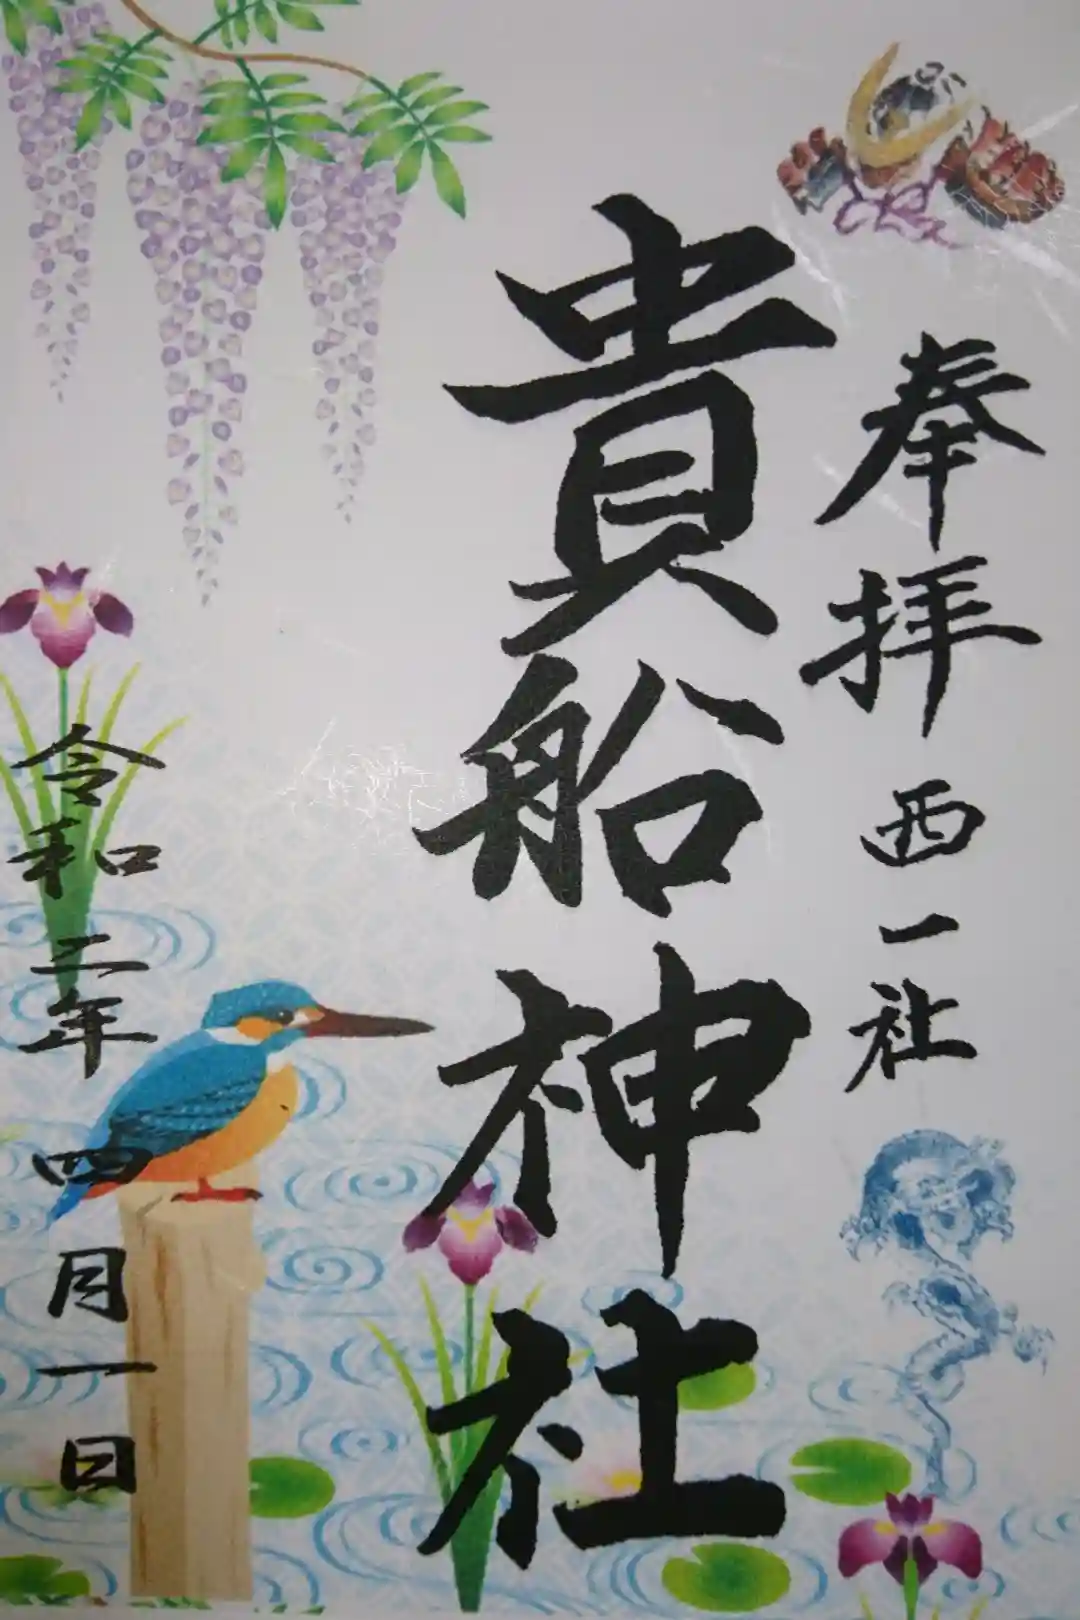 奉拝 西一社
貴船神社
令和二年 四月一日